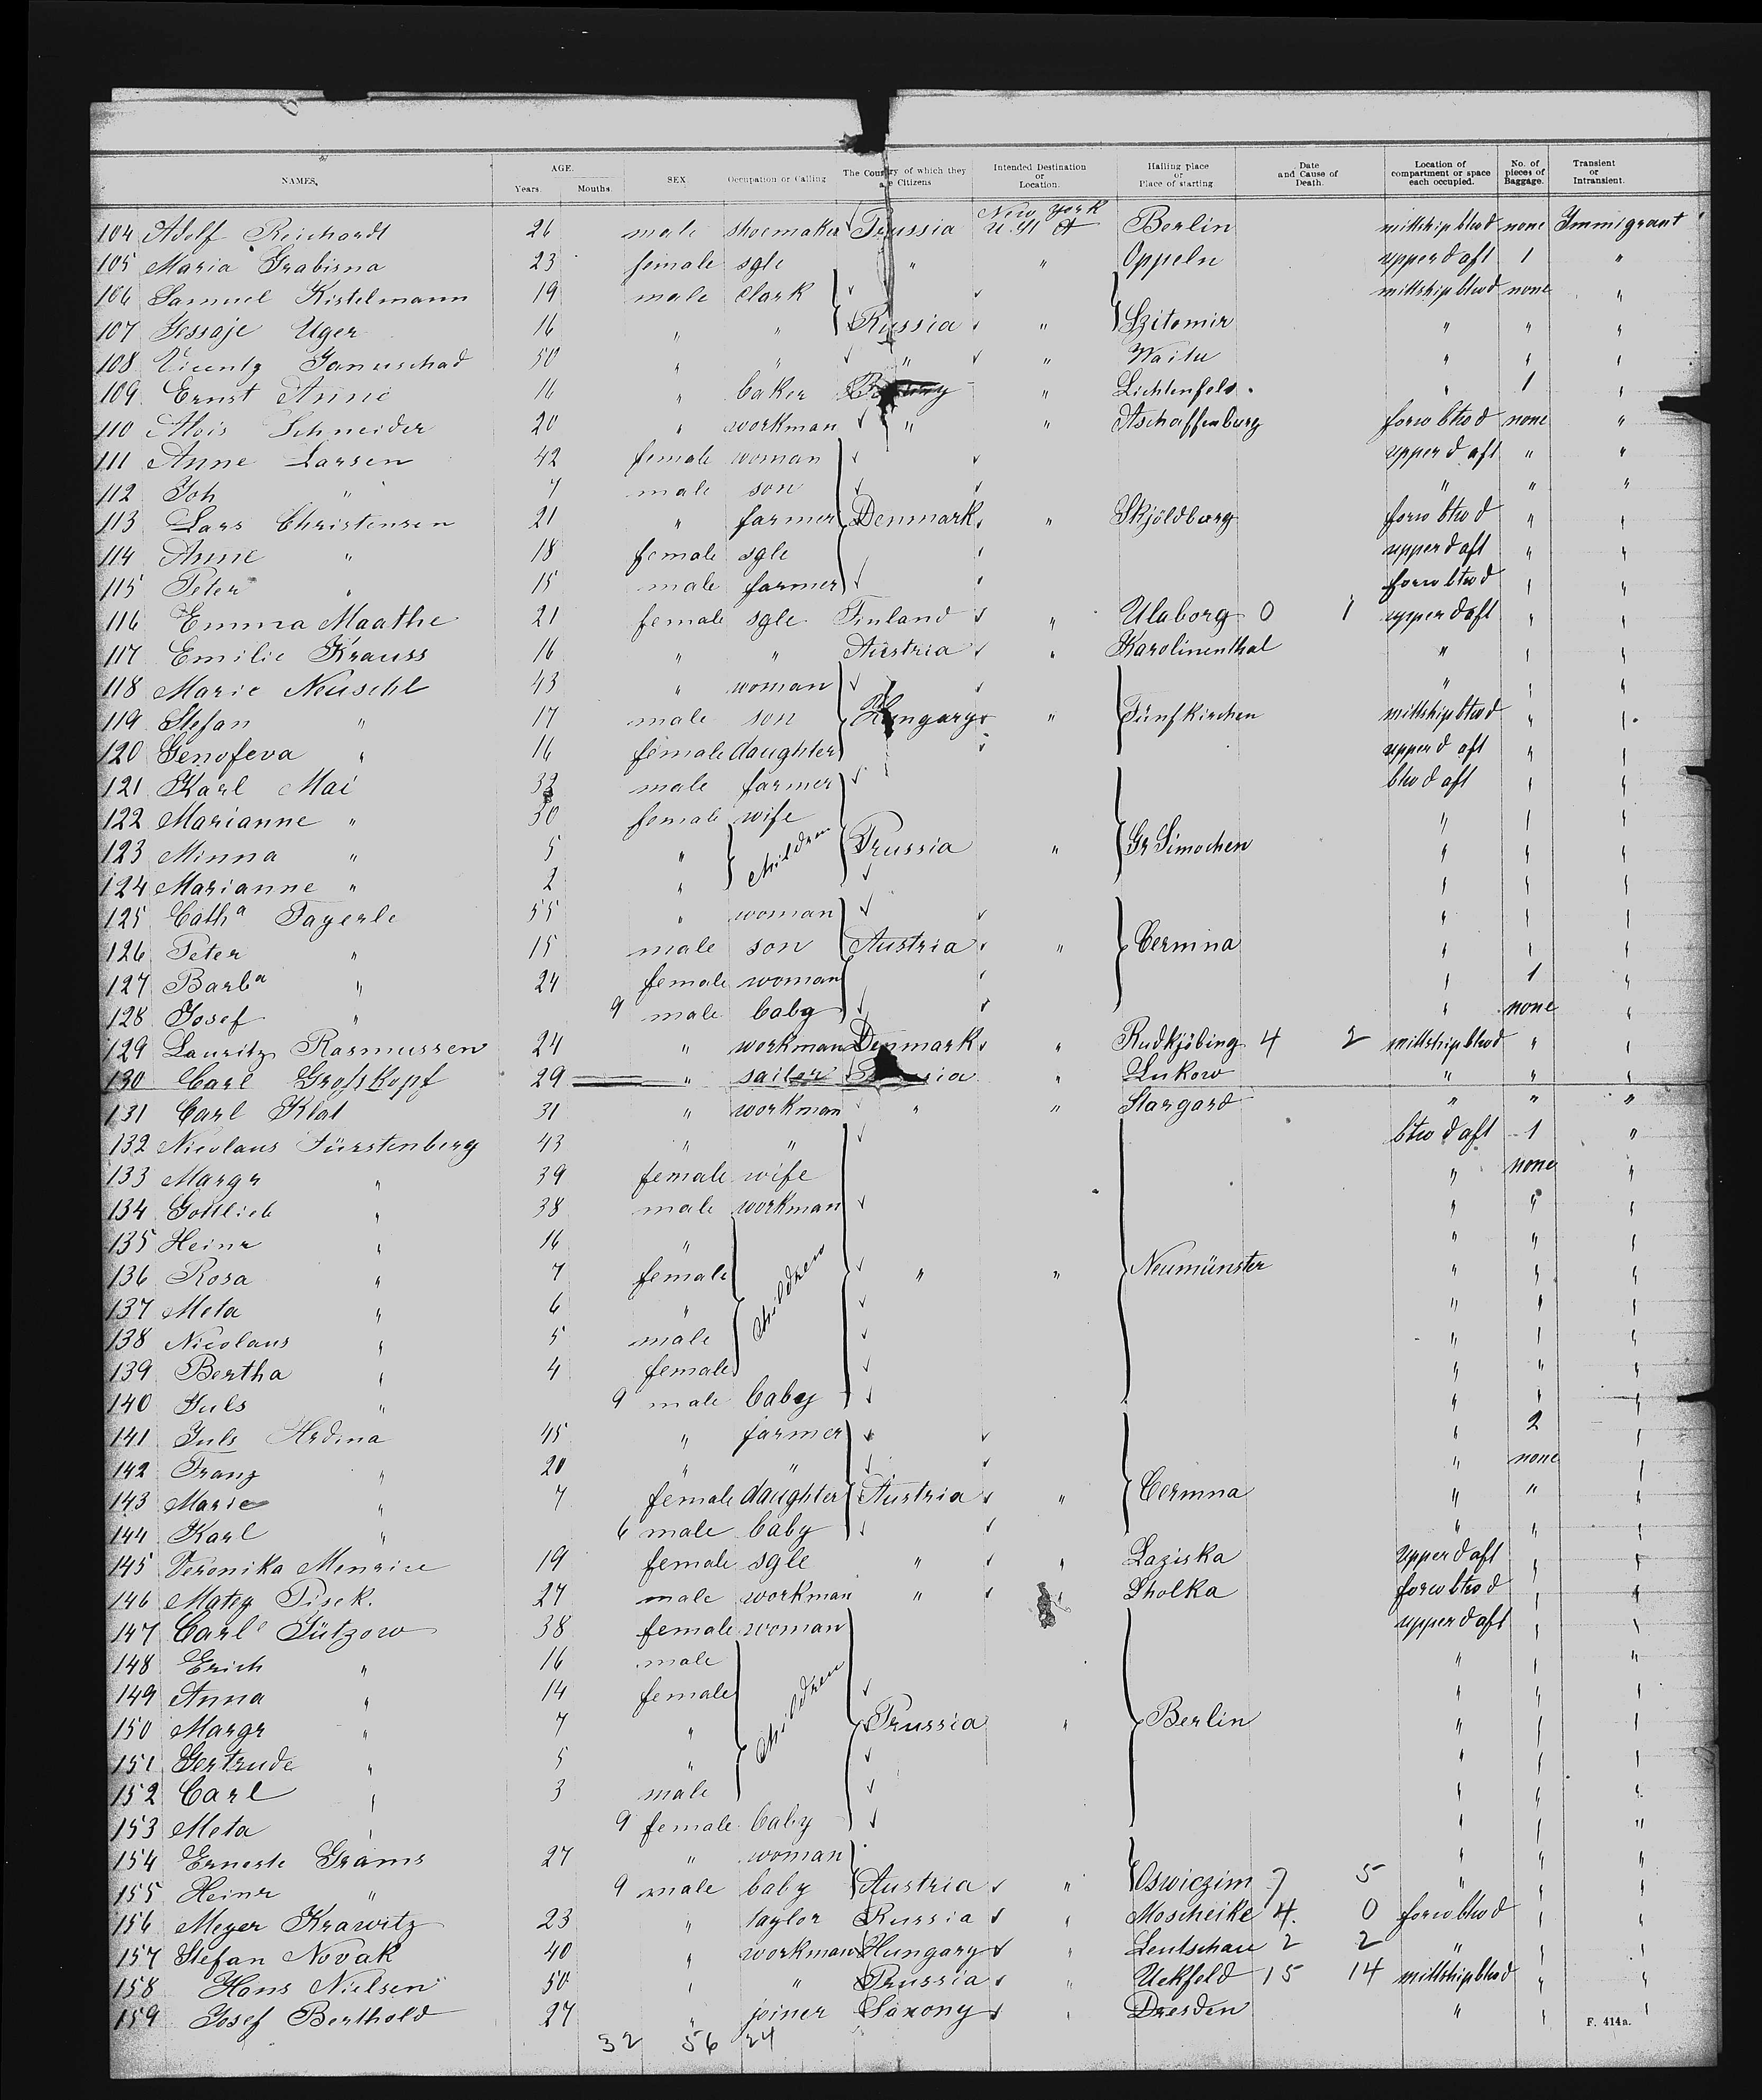 NAMES. AGE. Years. Mouths. SEX Occupation or Calling The Country of which they are Citizens Intended Destination or Location. Hailing place or Place of starting Date and Cause of Death. Location of compartment or space each occupied. No. of pieces of Baggage. Transient or Intransient.
104 Adolf Reichardt 26 male shoemaker Prussia New York U. St. A Berlin mittship btwd none Immigrant
105 Maria Grabisna 23 female sgle " " Oppeln upper d aft 1 "
106 Samuel Kistelmann 19 male Clark mittship btwd none "
107 Jessoje Uger 16 " " Russia " Szitomir " " "
108 Vicenty Januschad 50 " " " " Waitu " " "
109 Ernst Anne 16 " baker " Lichtenfels " 1 "
110 Alois Schneider 20 " workman " " Aschaffenburg forw btwd none "
111 Anne Larsen 42 female woman upper d aft " "
112 Joh " 7 male son " " "
113 Lars Christensen 21 " farmer Denmark " Skjöldborg forw btwd " "
114 Anne " 18 female sgle upper d aft " "
115 Peter " 15 male farmer forw btwd " "
116 Emma Maathe 21 female sgle Finland " Ulaborg 0 1 upper d aft " "
117 Emilie Krauss 16 " " Austria " Karolinenthal " " "
118 Marie Neuschl 43 " woman " " "
119 Stefan " 17 male son Hungary " Fünfkirchen mittship btwd " "
120 Genofeva " 16 female daughter upper d aft " "
121 Karl Mai 32 male farmer btw d aft " "
122 Marianne " 30 female wife " " "
123 Minna " 5 " children Prussia " Gr Simochen " " "
124 Marianne " 2 " " " "
125 Catha Fayerle 55 " woman " " "
126 Peter " 15 male son Austria " Cermna " " "
127 Barba " 24 female woman " 1 "
128 Josef " 9 male baby " none "
129 Lauritz Rasmussen 24 " workman Denmark " Rudkjöbing 4 2 mittship btwd " "
130 Carl Grosskopf 29 " sailor " Lukow " " "
131 Carl Klat 31 " workman " " Stargard " " "
132 Nicolaus Fürstenberg 43 " " btw d aft 1 "
133 Margr " 39 female wife " none "
134 Gottlieb " 38 male workman " " "
135 Heinr " 16 " children " " "
136 Rosa " 7 female " " Neumünster " " "
137 Meta " 6 " " " "
138 Nicolaus " 5 male " " "
139 Bertha " 4 female " " "
140 Juls " 9 male baby " " "
141 Juls Hrdina 45 " farmer " 2 "
142 Franz " 20 " " " none "
143 Marie " 7 female daughter Austria " Cermna " " "
144 Karl " 6 male baby " " "
145 Veronika Menrice 19 female sgle " " Laziska upper d aft " "
146 Matey Pisek. 27 male workman " " Lholka forw btwd " "
147 Carle Lützow 38 female woman upper d aft " "
148 Erich " 16 male children " " "
149 Anna " 14 female " " "
150 Margr " 7 " Prussia " Berlin " " "
151 Gertrude " 5 " " " "
152 Carl " 3 male " " "
153 Meta " 9 female baby " " "
154 Erneste Grams 27 " woman " " "
155 Heinr " 9 male baby Austria " Oswiczim 7 5 " " "
156 Meyer Krawitz 23 " taylor Russia " Moscheike 4. 0 forw btwd " "
157 Stefan Novak 40 " workman Hungary " Leutschau 2 2 " " "
158 Hans Nielsen 50 " " Prussia " Uekfeld 15 14 mittship btwd " "
159 Josef Berthold 27 " joiner Saxony " Dresden " " "
32 56 24
F. 414a.